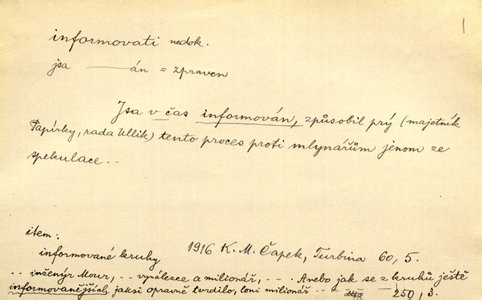 1
informovati nedok.
jsa ——án = zpraven
Jsa v čas informován, způsobil prý (majetník
Papírky, rada Ullik) tento proces proti mlynářům jenom ze
spekulace..
item:
informované kruhy 1916 K. M. Čapek, Turbina 60, 5.
.. inženýr Mour, .. vynálezce a milionář, .... Anebo jak se z kruhů ještě
informovanějších jaksi opravně tvrdilo, loni milionář -- 250, 3.